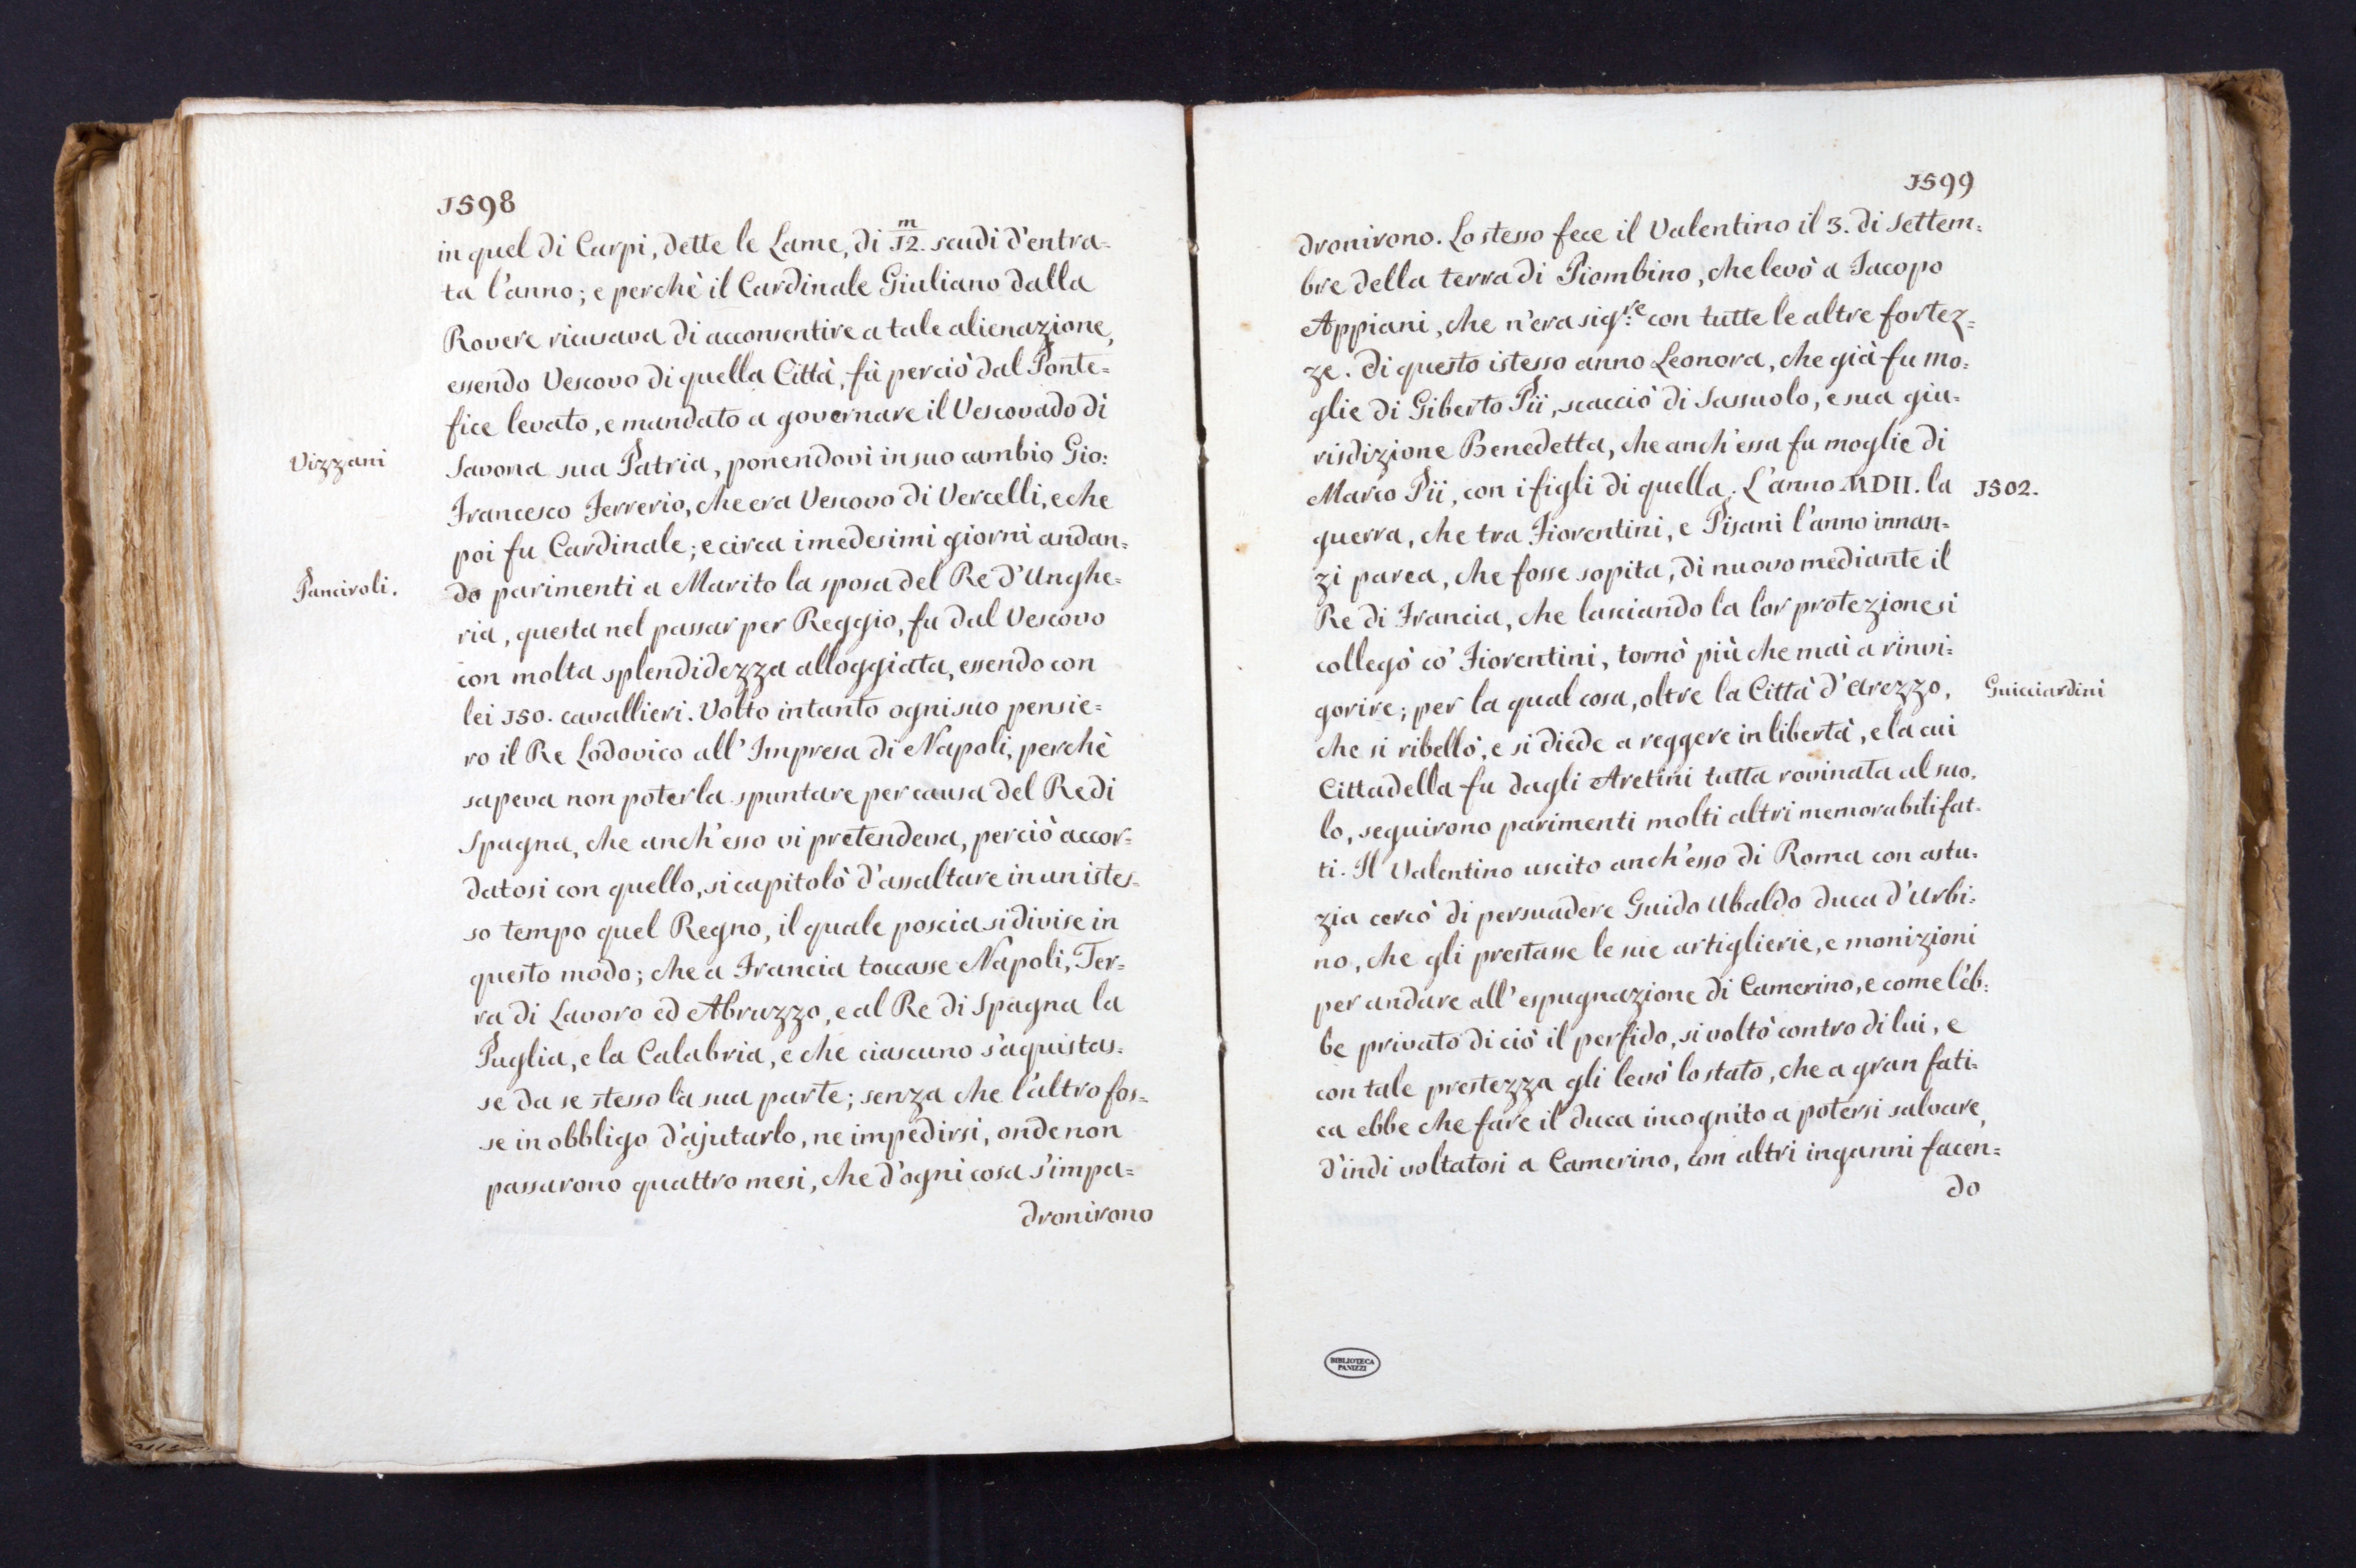 1598
in quel di Carpi, dette le Lame, di m/12. scudi d'entra=
ta l'anno; e perchè il Cardinale Giuliano dalla
Rovere ricusava di acconsentire a tale alienazione,
essendo Vescovo di quella Città, fù perciò dal Ponte=
fice levato, e mandato a governare il Vescovado di
Vizzani
Savona sua Patria, ponendovi in suo cambio Gio:
Francesco Ferrerio, che era Vescovo di Vercelli, e che
poi fu Cardinale; e circa i medesimi giorni andan=
Panciroli.
do parimenti a Marito la sposa del Re d'Unghe=
ria, questa nel passar per Reggio, fu dal Vescovo
con molta splendidezza alloggiata, essendo con
lei 150. cavallieri. Volto intanto ogni suo pensie=
ro il Re Lodovico all'Impresa di Napoli, perchè
sapeva non poterla spuntare per causa del Re di
Spagna, che anch'esso vi pretendeva, perciò accor=
datosi con quello, si capitolò d'assaltare in un istes=
so tempo quel Regno, il quale poscia si divise in
questo modo; che a Francia toccasse Napoli, Ter=
ra di Lavoro ed Abruzzo, e al Re di Spagna la
Puglia, e la Calabria, e che ciascuno s'aquistas=
se da se stesso la sua parte; senza che l'altro fos=
se in obbligo d'ajutarlo, ne impedirsi, onde non
passarono quattro mesi, che d'ogni cosa s'impa=
dronirono
1599
dronirono. Lo stesso fece il Valentino il 3. di Settem=
bre della terra di Piombino, che levò a Jacopo
Appiani, che n'era sig.re con tutte le altre fortez=
ze. Di questo istesso anno Leonora, che già fu mo=
glie di Giberto Pii, scacciò di Sassuolo, e sua giu=
risdizione Benedetta, che anch'essa fu moglie di
Marco Pii, con i figli di quella. L'anno MDII. la
1502.
guerra, che tra Fiorentini, e Pisani l'anno innan=
zi parea, che fosse sopita, di nuovo mediante il
Re di Francia, che lasciando la lor protezione si
collegò co' Fiorentini, tornò più che mai a rinvi=
gorire; per la qual cosa, oltre la Città d'Arezzo,
Guicciardini
che si ribellò, e si diede a reggere in libertà, e la cui
Cittadella fu dagli Aretini tutta rovinata al suo=
lo, seguirono parimenti molti altri memorabili fat=
ti. Il Valentino uscito anch'esso di Roma con astu=
zia cercò di persuadere Guido Ubaldo Duca d'Urbi=
no, che gli prestasse le sue artiglierie, e monizioni
per andare all'espugnazione di Camerino, e come l'eb=
be privato di ciò il perfido, si voltò contro di lui, e
con tale prestezza gli levò lo stato, che a gran fati=
ca ebbe che fare il Duca incognito a potersi salvare,
d'indi voltatosi a Camerino, con altri inganni facen=
do
BIBLIOTECA
PANIZZI